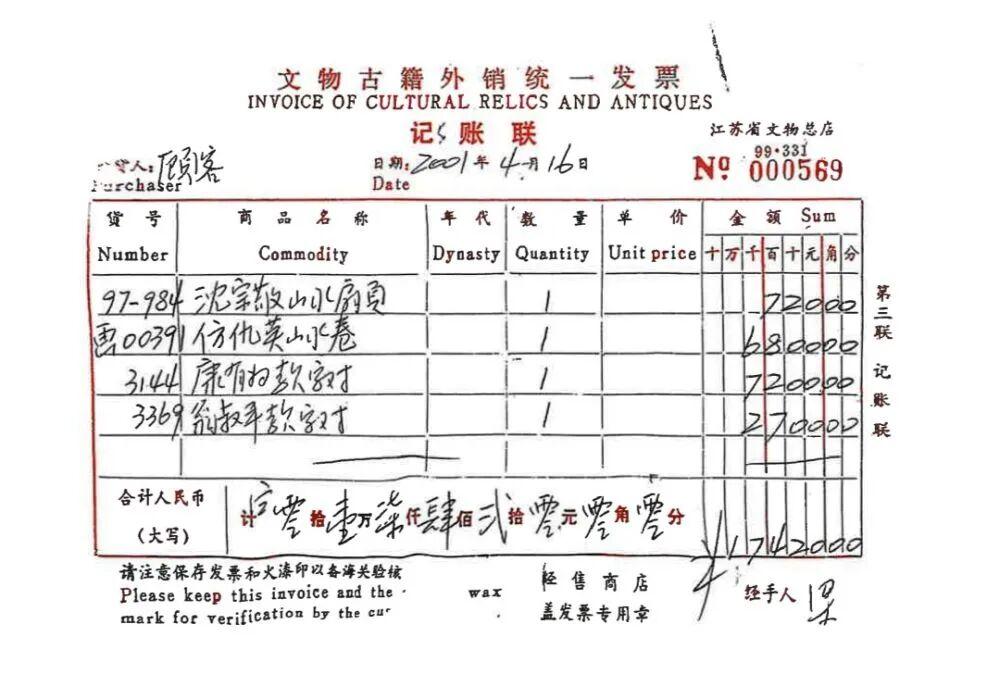 文物古籍外销统一发票
INVOICE OF CULTURAL RELICS AND ANTIQUES
记账联
江苏省文物总店
货人：顾客
Purchaser
日期：2001年4月16日
Date
99·331
No 000569
货号 商品名称 年代 数量 单价 金额 Sum
Number Commodity Dynasty Quantity Unit price 十万千百十元角分
97-984 沈宗敬山水扇页 1 72000
画00391 仿仇英山水卷 1 680000
3144 康有为款字对 1 720000
3369 翁叔平款字对 1 270000
合计人民币
（大写）
计 零拾壹万柒仟肆佰贰拾零元零角零分 ¥1742000
第三联 记账联
请注意保存发票和火漆印以备海关验核
Please keep this invoice and the wax
mark for verification by the cu
经售商店
盖发票专用章
经手人